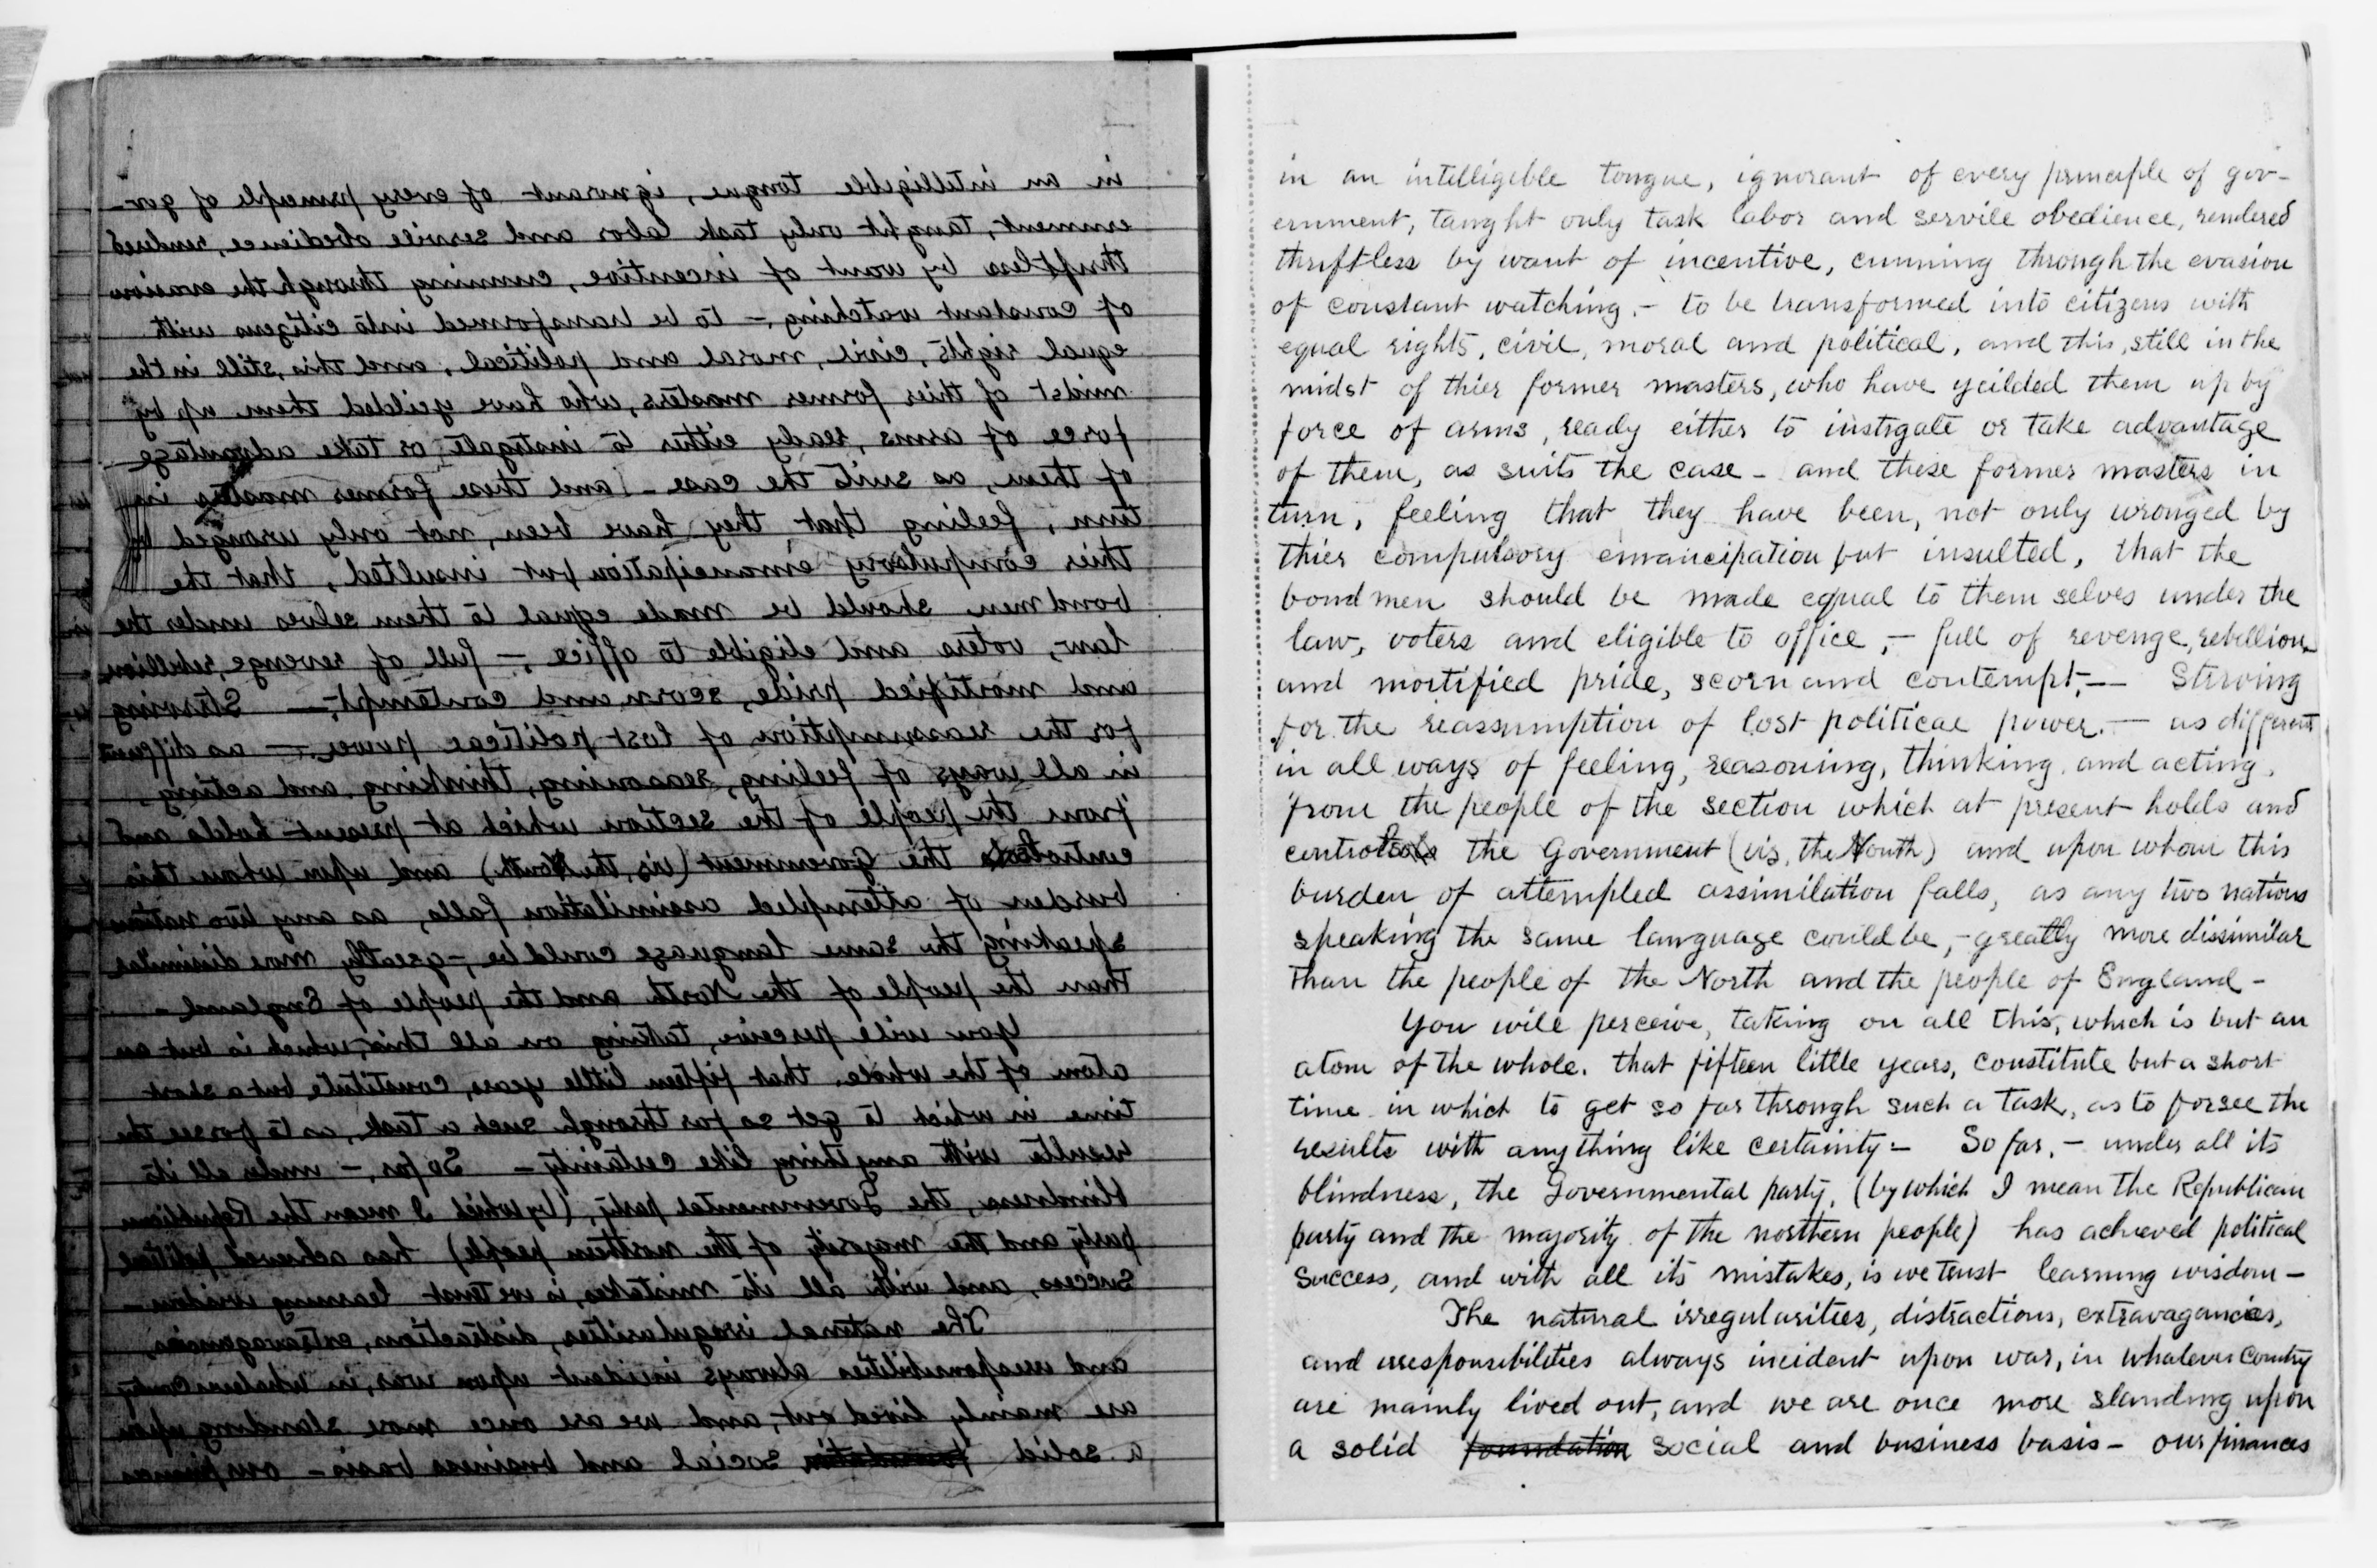 in an intelligible tongue, ignorant of every principle of gov-
ernment, taught only task labor and servile obedience, rendered
thriftless by want of incentive, cunning through the evasion
of constant watching, - to be transformed into citizens with
equal rights, civil, moral and political, and this, still in the
midst of thier former masters, who have yeilded them up by
force of arms, ready either to instigate or take advantage
of them, as suits the case - and these former masters in
turn, feeling that they have been, not only wronged by
thier compulsory emancipation but insulted, that the
bond men should be made equal to them selves under the
law, voters and eligible to office, - full of revenge, rebellion,
and mortified pride, scorn and contempt, — Striving
for the reassumption of lost political power. — as different
in all ways of feeling, reasoning, thinking, and acting,
from the people of the section which at present holds and
the Government (vis, the North) and upon whom this
burden of attempted assimilation falls, as any two nations
speaking the same language could be, - greatly more dissimilar
than the people of the North and the people of England -
You will perceive, taking on all this, which is but an
atom of the whole, that fifteen little years, constitute but a short
time in which to get so far through such a task, as to forsee the
results with anything like certainty - So far, - under all its
blindness, the Governmental party, (by which I mean the Republican
party and the majority of the northern people) has achieved political
success, and with all its mistakes, is we trust learning wisdom -
The natural irregularities, distractions, extravagancies,
and irresponsibilities always incident upon war, in whatever country
are mainly lived out, and we are once more standing upon
a solid foundation social and business basis - our finances